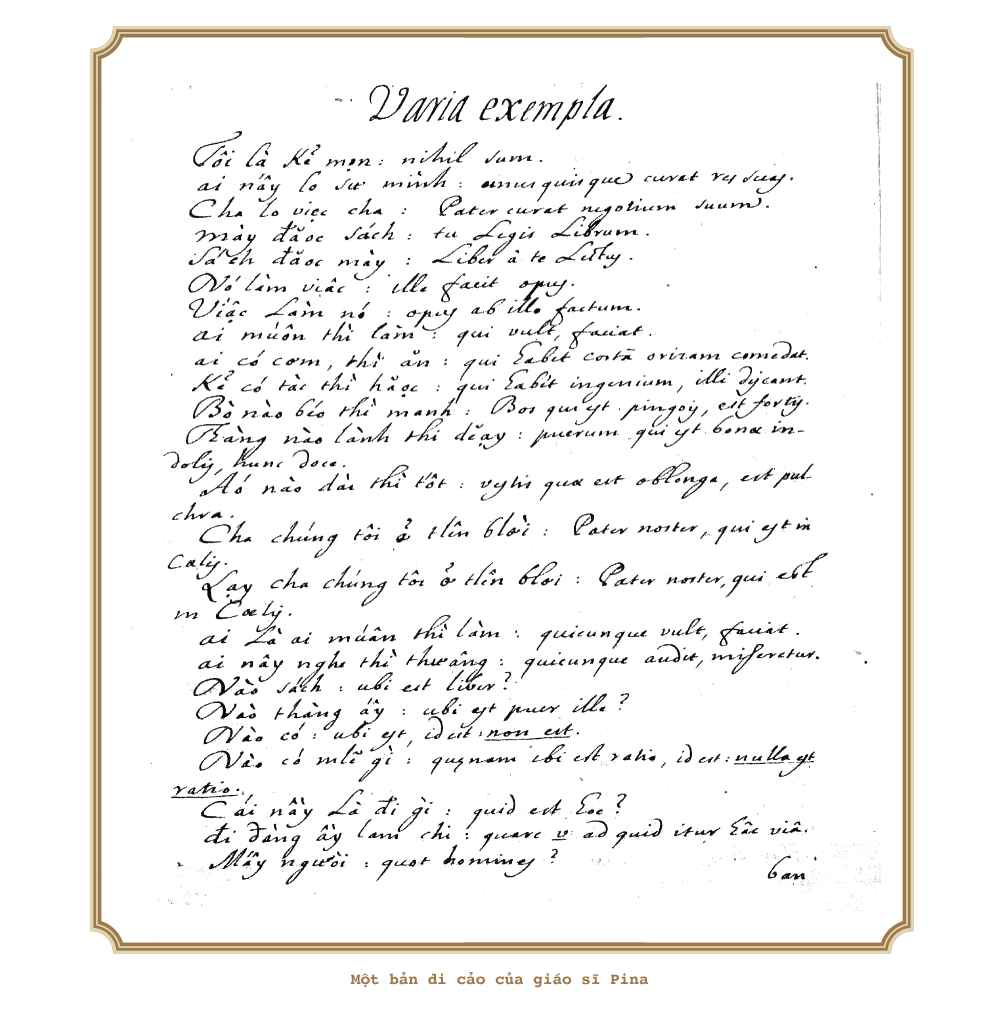 Varia exempla.
Tôi là Kẻ mọn: nihil sum.
ai nấy lo sự mình: unusquisque curat res suas.
Cha lo việc cha : Pater curat negotium suum.
mày đăọc sách : tu Legis Librum.
Sách đăọc mày : Liber à te Lectus.
Nó làm viậc : ille facit opus.
Viậc Làm nó : opus ab illo factum.
ai muấn thì làm : qui vult, faciat.
ai có cơm, thì ăn : qui habet coctā orizam comedat.
Kẻ có tàc thì hăọc : qui habet ingenium, illi discant.
Bò nào béo thì mạnh : Bos qui est pinguis, est fortis.
Thàng nào lành thì dĕạy : puerum qui est bonæ in-
dolis, hunc doce.
Aó nào dài thì tốt : vestis quæ est oblonga, est pul-
chra.
Cha chúng tôi ở tlên blời : Pater noster, qui est in
Cælis.
Lạy cha chúng tôi ở tlên blời : Pater noster, qui est
in Cœlis.
ai Là ai muấn thì làm : quicunque vult, faciat.
ai nấy nghe thì thương : quicunque audit, miseretur.
Nào sách : ubi est liber?
Nào thàng ấy : ubi est puer ille?
Nào có : ubi est, id est : non est.
Nào có mlẽ gì : quænam ibi est ratio, id est : nulla est
ratio.
Cái nầy Là đi gì : quid est hoc?
đi đàng ấy làm chi : quare v ad quid itur hâc viâ.
Mấy người : quot homines?
ban
Một bản di cảo của giáo sĩ Pina